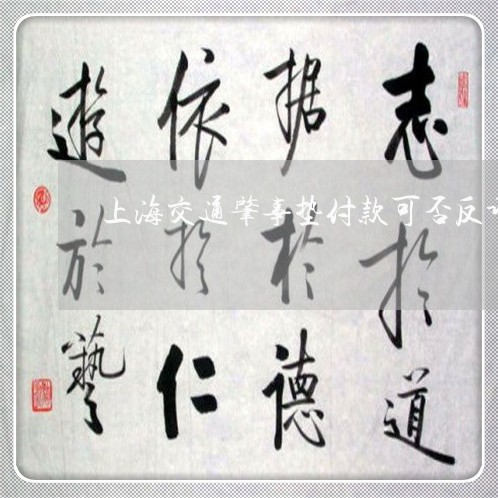 志於道
据於德
依於仁
遊於藝
上海交通肇事垫付款可否反